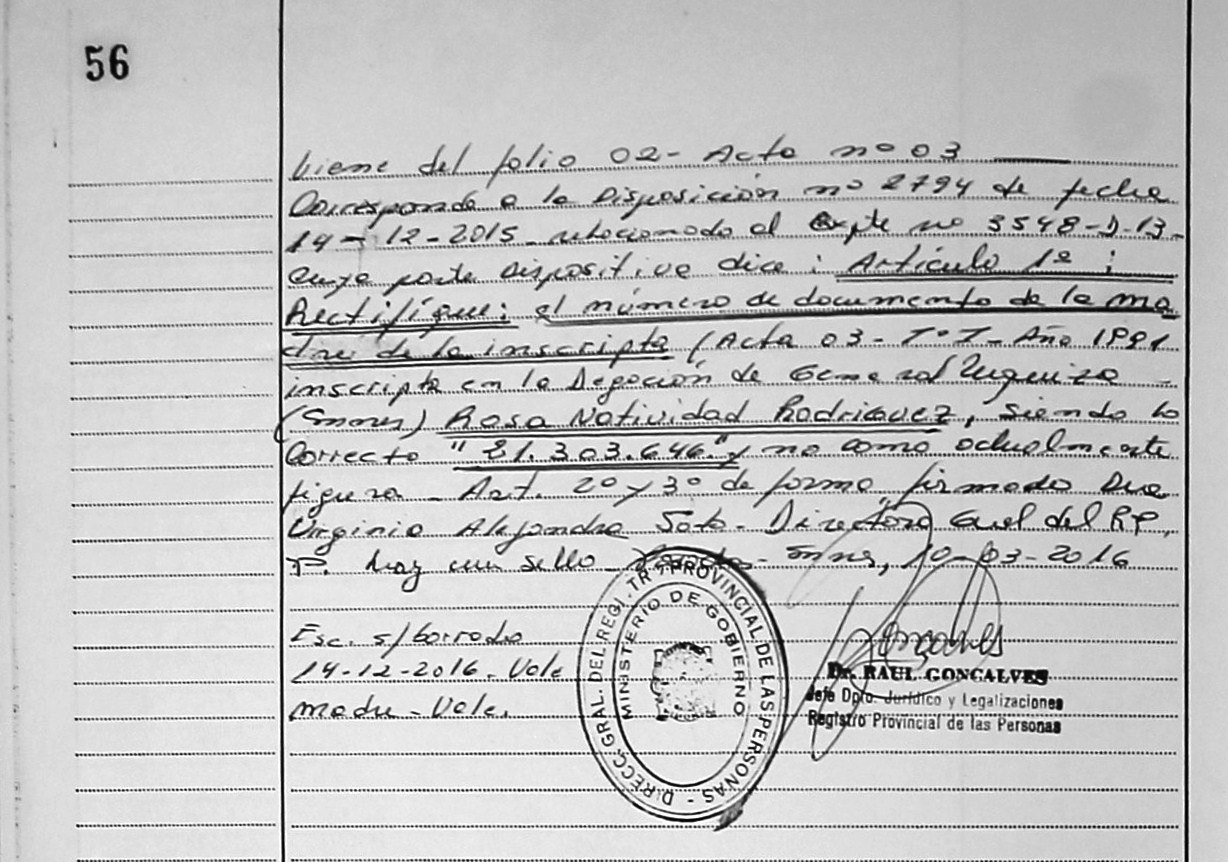 56
Viene del folio 02- Acta nº 03
Corresponde a la Disposición nº 2794 de fecha
14-12-2015 relacionado al Expte nº 3548-D-13-
cuya parte Dispositiva dice: Artículo 1º:
Rectifíque: el número de documento de la ma
dre de la inscripta (Acta 03- Tº I- Año 1991
inscripta en la Degación de General Urquiza -
(Smnes) Rosa Natividad Rodriguez, siendo lo
Correcto "21.303.646." y no como actualmente
figura - Art. 2º y 3º de forma, firmado Dra
Virginia Alejandra Soto- Directora Gral del RP.
P. hay un sello - Smnes, 10-03-2016
Esc. s/borrado
14-12-2016. Vale
madre - Vale.
DIRECC. GRAL. DEL REGISTRO PROVINCIAL DE LAS PERSONAS -
MINISTERIO DE GOBIERNO
Goncalves
Dr. RAUL GONCALVES
Jefe Dpto. Jurídico y Legalizaciones
Registro Provincial de las Personas